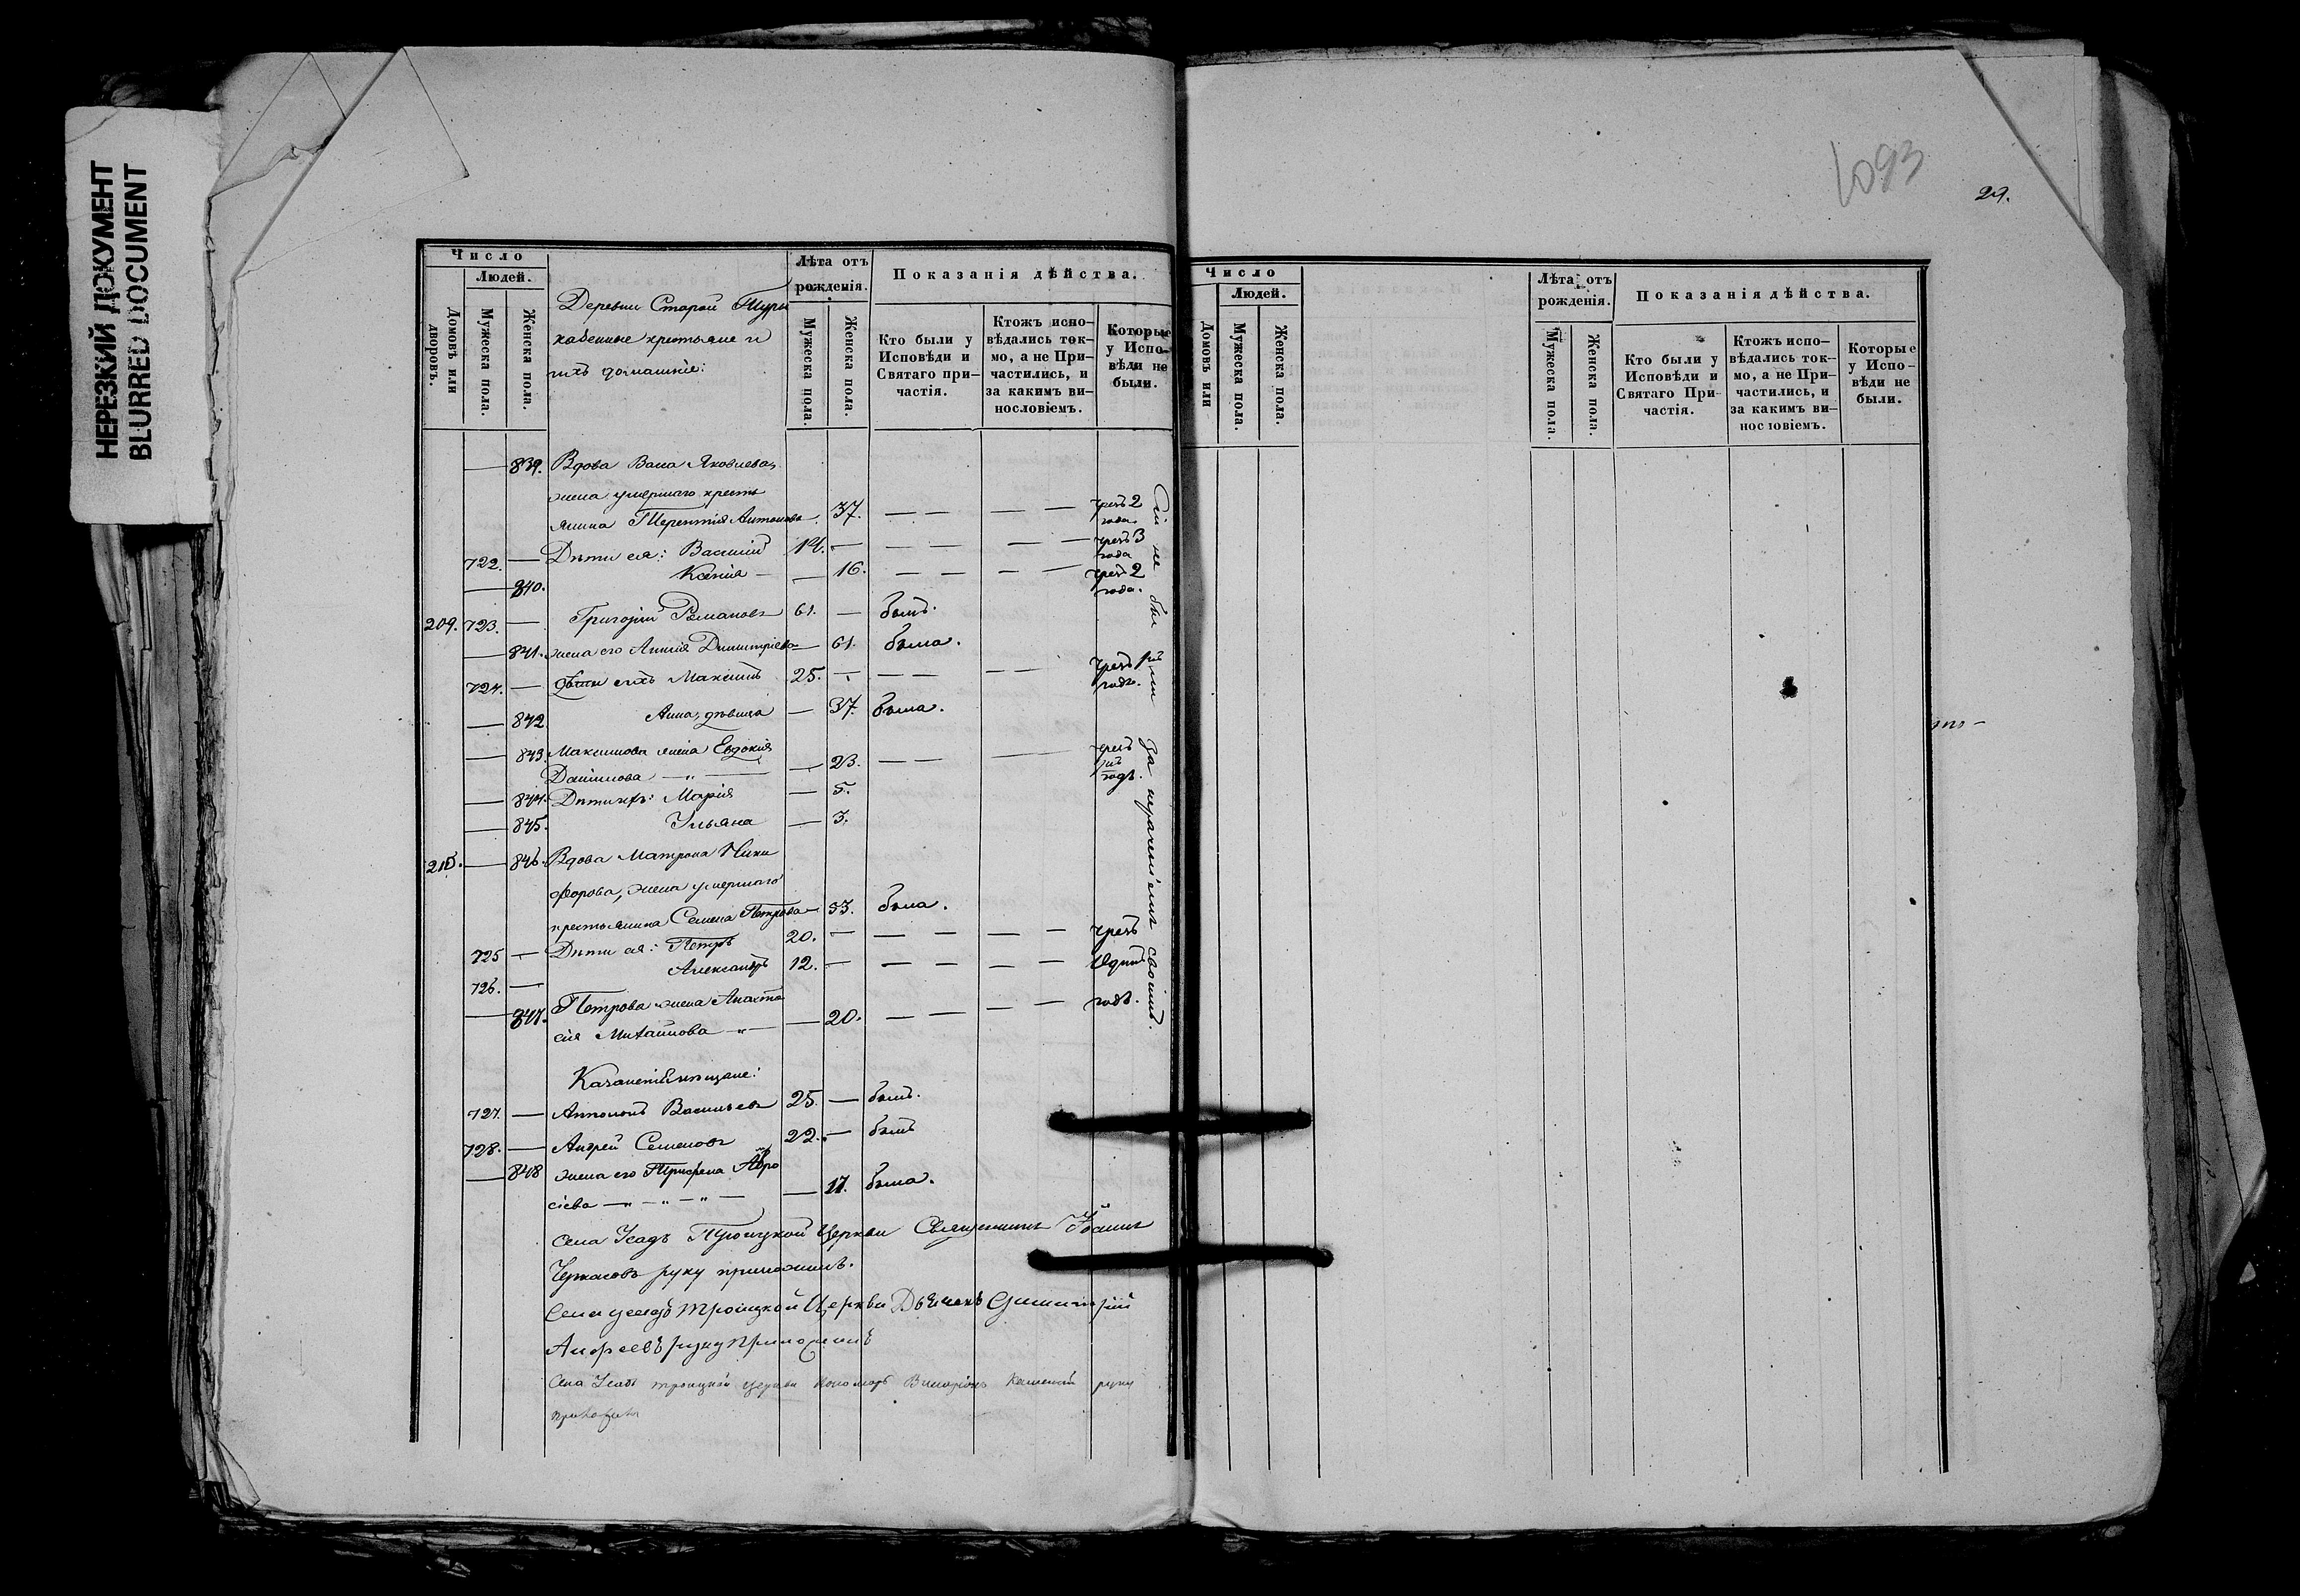 НЕРЕЗКИЙ ДОКУМЕНТ
BLURRED DOCUMENT
Число
Людей.
Домовъ или дворовъ.
Мужеска пола.
Женска пола.
Деревни Старой Тур
их домашніе:
Лѣта отъ рожденія.
Мужеска пола.
Женска пола.
Показанія дѣйства.
Кто были у Исповѣди и Святаго при-
частія.
Ктожъ испо-
вѣдались ток-
мо, а не При-
частились, и
за какимъ ви-
нословіемъ.
Которые
у Испо-
вѣди не
были.
839. Вдова Васса Яковлева,
жена умершаго кресть
янина Терентія Антонова 37. — — — — чрезъ 2 года.
722. — Дѣти ея: Василій 14. — — — — — чрезъ 3 года
840. Ксенія — — 16. — — — — чрезъ 2 года.
209. 723. — Григорій Романовъ 61. — былъ.
— 841. жена его Димитріева — 61. была.
724. — Дѣти ихъ Максимъ 25. — — — — — чрезъ годъ.
— 842. Анна, дѣвица — 37. была.
— 843. Максимова жена Евдокія
Данилова — „ — — 23. — — — чрезъ годъ.
— 844. Дѣти ихъ: Марія — 5.
— 845. Ульяна — 3.
210. — 846. Вдова Матрона Ники
форова, жена умершаго
крестьянина Семена Петрова — 53. была.
725 — Дѣти ея: Петръ 20. — — — — — чрезъ
726. — Александръ 12. — — — — — Одинъ
— 847. Петрова жена Анаста годъ.
сія Михайлова — „ — — 20. — — — —
за нераченіемъ своимъ.
727. — Васильевъ 25. — былъ.
728. — Андрей Семеновъ 22. — былъ
— 848 жена его
сіева — „ — „ — „ — — 17. была.
Села Усадъ Троицкой Церкви Священникъ Іоаннъ
Черкасовъ руку приложилъ.
Села усадъ троицкой Церкви Дьячекъ Димитрій
Андреевъ руку приложилъ
Села Усадъ троицкой церкви пономарь руку
приложилъ
1093
29.
Число
Людей.
Домовъ или
Мужеска пола.
Женска пола.
Лѣта отъ
рожденія.
Мужеска пола.
Женска пола.
Показанія дѣйства.
Кто были у
Исповѣди и
Святаго При-
частія.
Ктожъ испо-
вѣдались ток-
мо, а не При-
частились, и
за какимъ ви-
нословіемъ.
Которые
у Испо-
вѣди не
были.